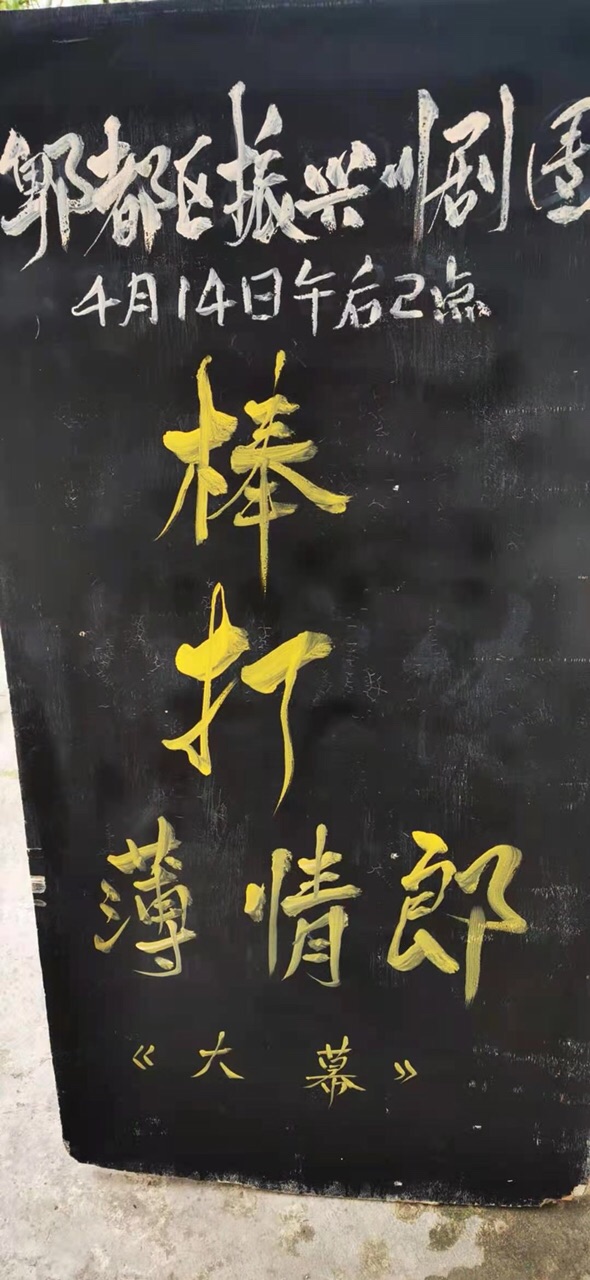 郫都区振兴川剧团
4月14日午后2点
棒
打
薄情郎
《大幕》